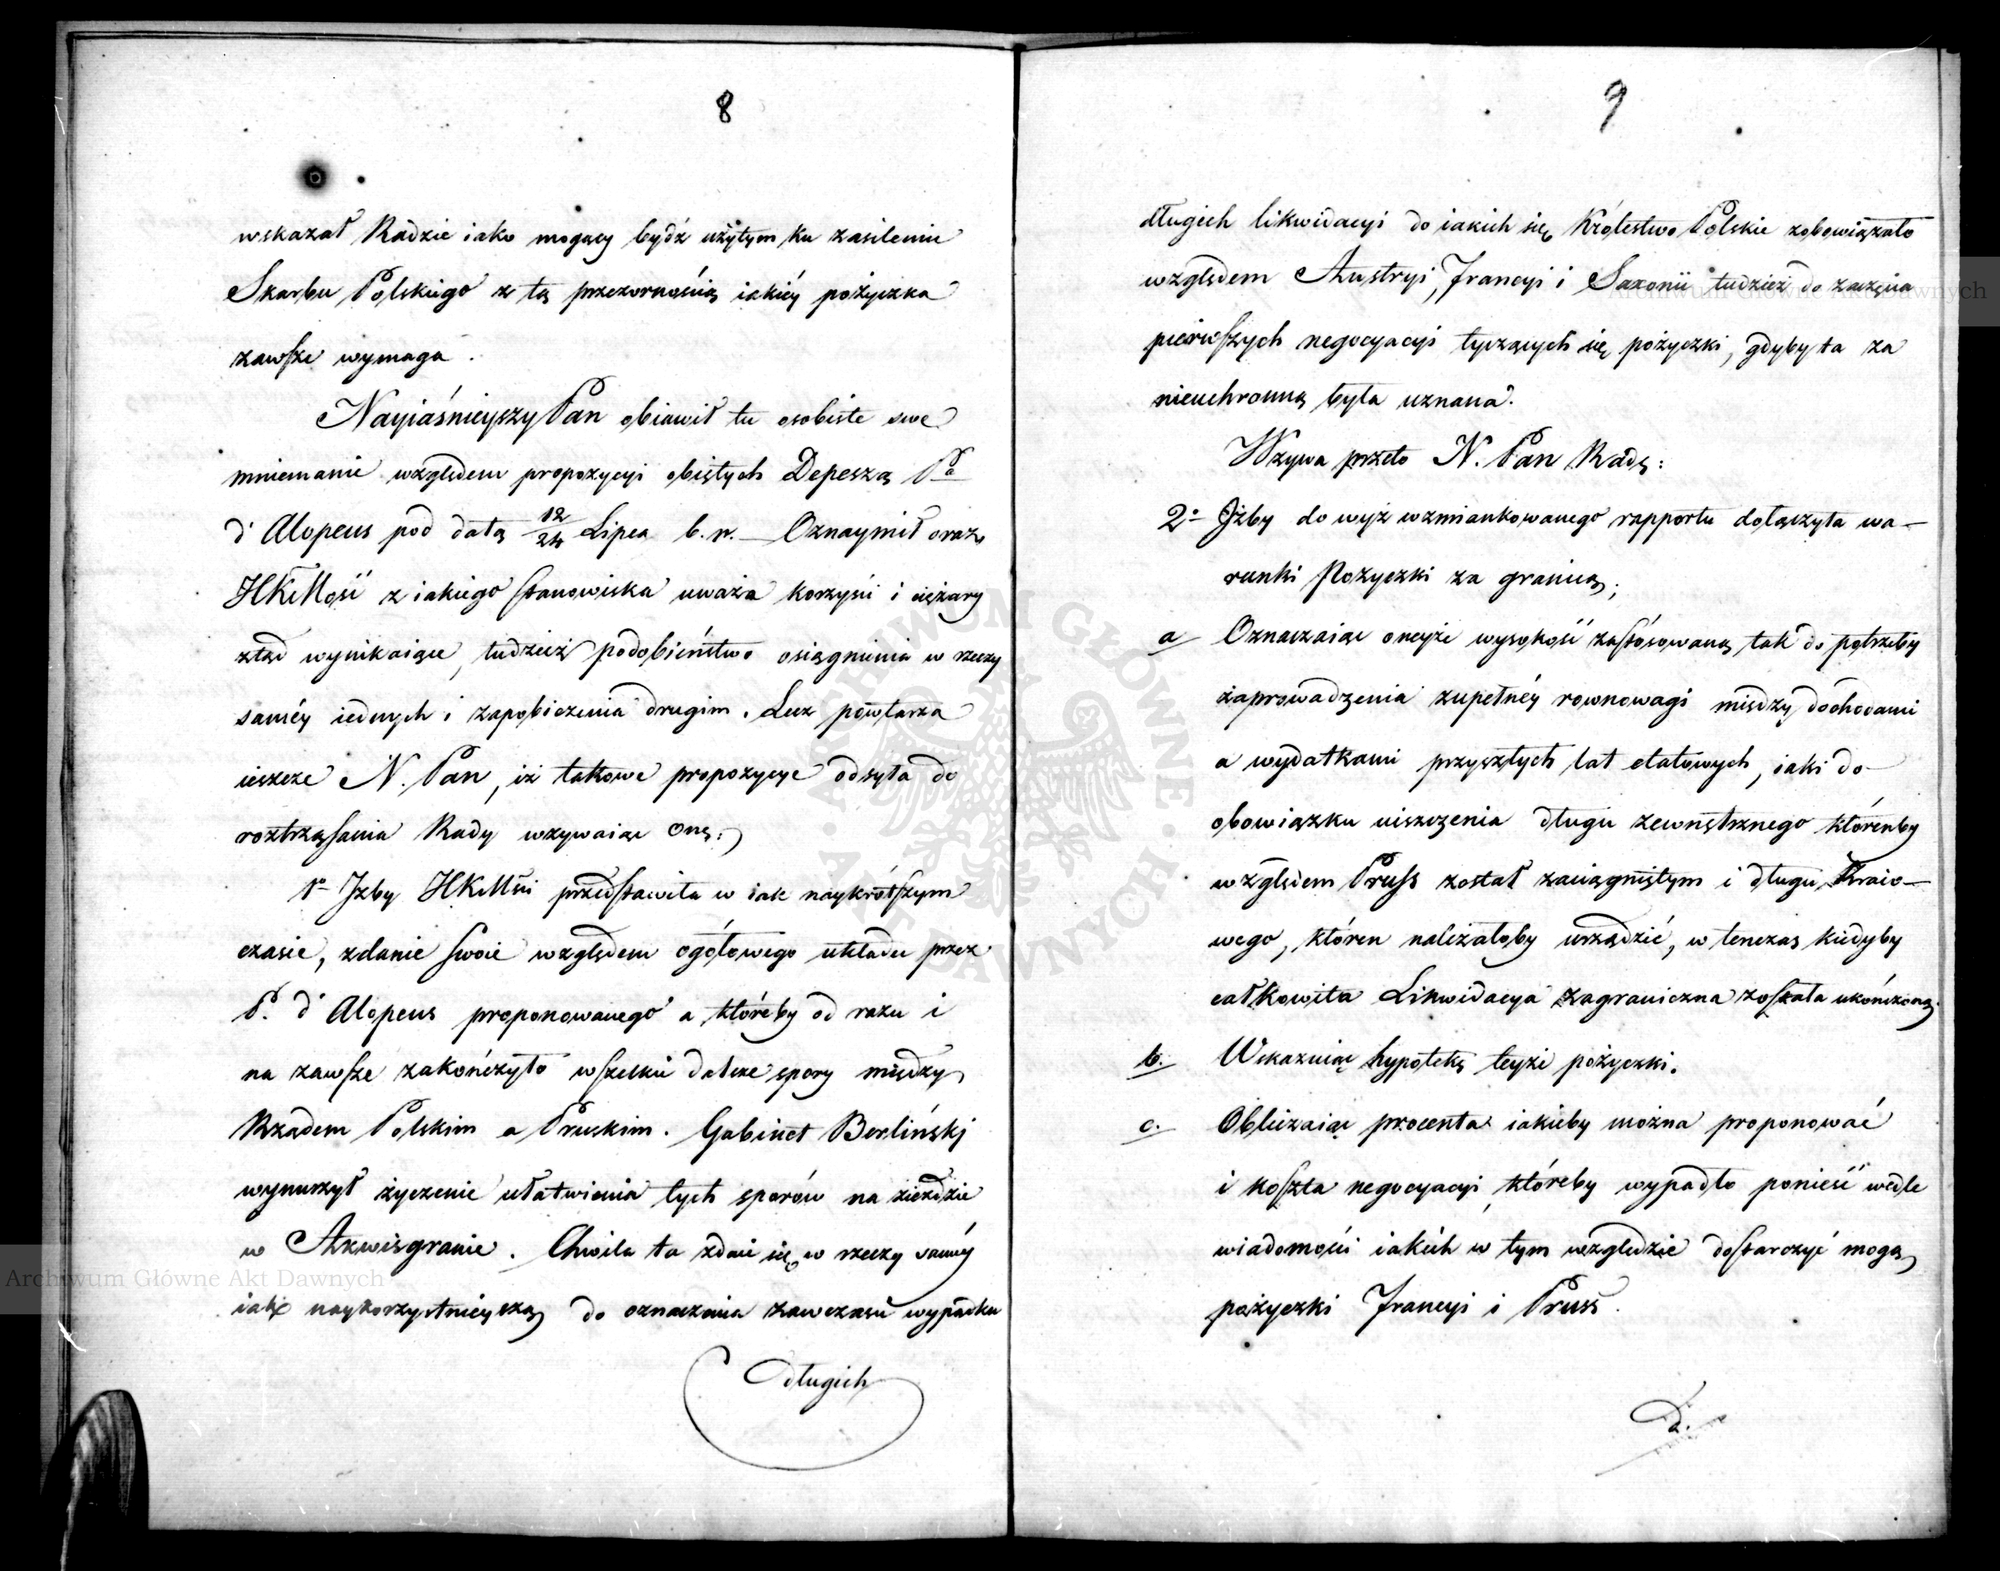 8
wskazał Radzie iako mogący bydź użytym ku zasileniu
Skarbu Polskiego z tą przezornością iakiéy pożyczka
zawsze wymaga.
Nayiaśnieyszy Pan obiawił tu osobiste swe
mniemanie względem propozycyi obiętych Depeszą Pa
d'Alopeus pod datą 12/24 Lipca b. r. — Oznaymił oraz
JKMość z iakiego stanowiska uważa korzyści i ciężary
ztąd wynikaiące, tudzież podobieństwo osiągnienia w rzeczy
saméy iednych i zapobieżenia drugim. Lecz powtarza
ieszcze N. Pan, iż takowe propozycye odsyła do
roztrząsania Rady wzywaiąc onę:
1o Iżby JKMści przedstawiła w iak naykrótszym
czasie, zdanie swoie względem ogółowego układu przez
P. d'Alopeus proponowanego a któréby od razu i
na zawsze zakończyło wszelkie dalsze spory między
Rządem Polskim a Pruskim. Gabinet Berliński
wynurzył życzenie ułatwienia tych sporów na zieździe
w Akwisgranie. Chwila ta zdaie się w rzeczy saméy
iak naykorzystnieyszą do oznaczenia zawczasu wypadku
długich
9
długich likwidacyi do iakich się Królestwo Polskie zobowiązało
względem Austryi, Francyi i Saxonii tudzież do zaczęcia
pierwszych negocyacyi tyczących się pożyczki, gdyby ta za
nieuchronną była uznana.
Wzywa przeto N. Pan Radę:
2o Iżby do wyż wzmiankowanego rapportu dołączyła wa-
runki Pożyczki za granicą;
a Oznaczaiąc oneyże wysokość zastosowaną tak do potrzeby
zaprowadzenia zupełnéy rownowagi między dochodami
a wydatkami przyszłych lat etatowych, iak i do
obowiązku uiszczenia długu zewnętrznego którenby
względem Pruss został zaciągniętym i długu Kraio-
wego, któren należałoby urządzić, w tenczas kiedyby
całkowita Likwidacya zagraniczna została ukończoną.
b. Wskazuiąc hypotekę teyże pożyczki.
c. Obliczaiąc procenta iakieby można proponować
i koszta negocyacyi któreby wypadło ponieść wedle
wiadomości iakich w tym względzie dostarczyć mogą
pożyczki Francyi i Pruss.
d.
Archiwum Główne Akt Dawnych